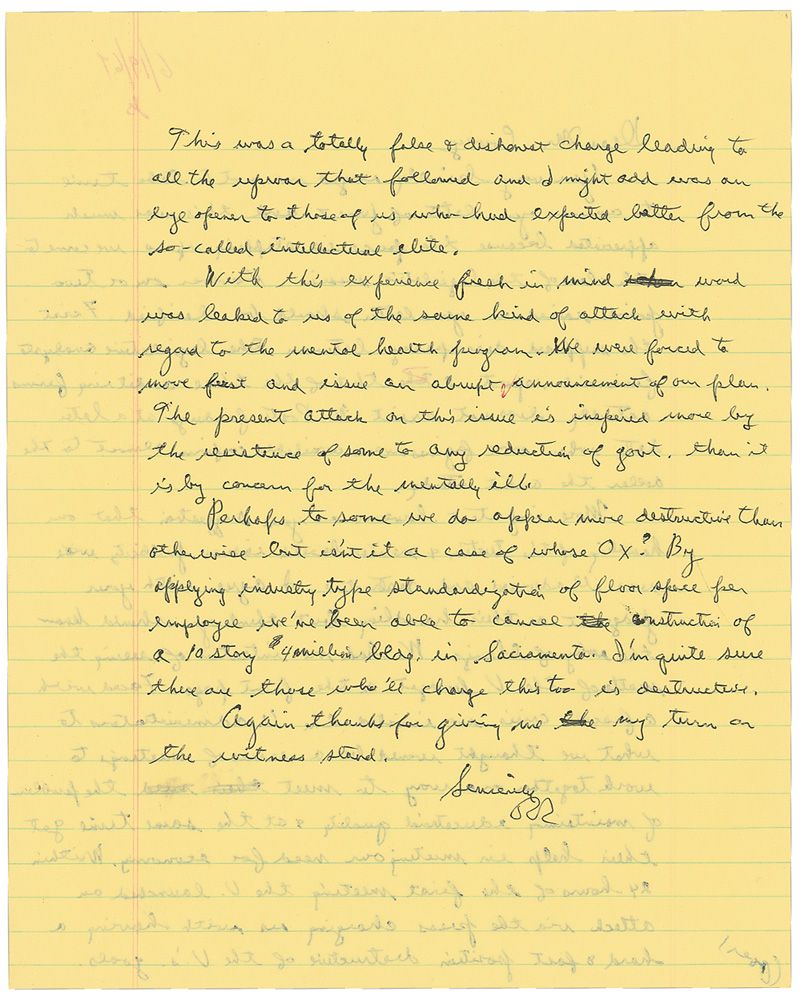 This was a totally false & dishonest charge leading to
all the uproar that followed and I might add was an
eye opener to those of us who had expected better from the
so-called intellectual elite.
With this experience fresh in mind word
was leaked to us of the same kind of attack with
regard to the mental health program. We were forced to
move fast and issue an abrupt, announcement of our plan.
The present attack on this issue is inspired more by
the resistence of some to any reduction of govt. than it
is by concern for the mentally ill.
Perhaps to some we do appear more destructive than
otherwise but isn't it a case of whose Ox? By
applying industry type standardization of floor space per
employee we've been able to cancel the construction of
a 10 story $4 million bldg. in Sacramento. I'm quite sure
there are those who'll charge this too is destructive.
Again thanks for giving me the my turn on
the witness stand.
Sincerely
RR
(over)